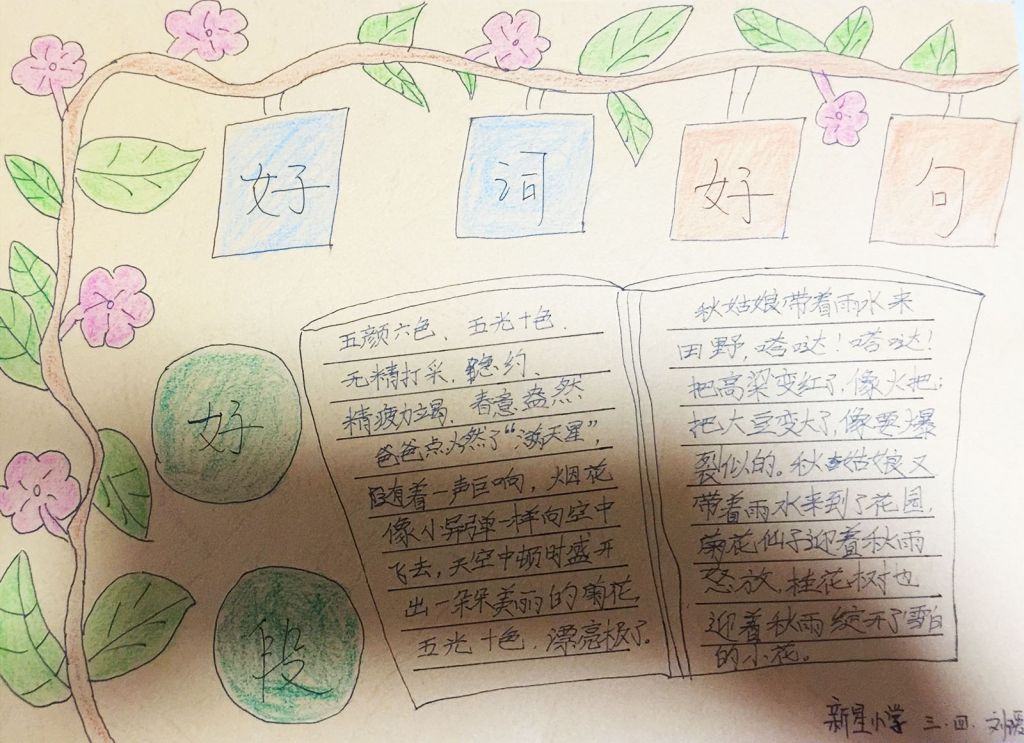 好 词 好 句
好
段
五颜六色、五光十色、
无精打采、隐约、
精疲力竭、春意盎然
爸爸点火然了“满天星”,
随着一声巨响,烟花
像小导弹一样向空中
飞去,天空中顿时盛开
出一朵朵美丽的菊花,
五光十色,漂亮极了。
秋姑娘带着雨水来
田野,嗒哒!嗒哒!
把高粱变红了,像火把;
把大豆变大了,像要爆
裂似的。秋姑娘又
带着雨水来到了花园,
菊花仙子迎着秋雨
怒放,桂花树也
迎着秋雨绽开了雪白
的小花。
新星小学 三.四 刘